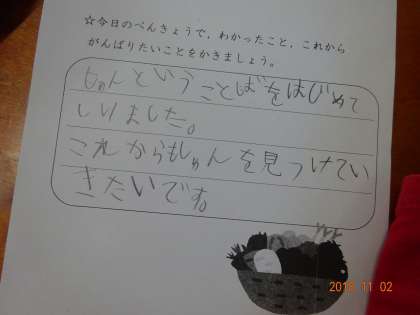 ☆今日のべんきょうで、わかったこと、これから
がんばりたいことをかきましょう。
しゅんということばをはじめて
しりました。
これからもしゅんを見つけてい
きたいです。
2018 11 02